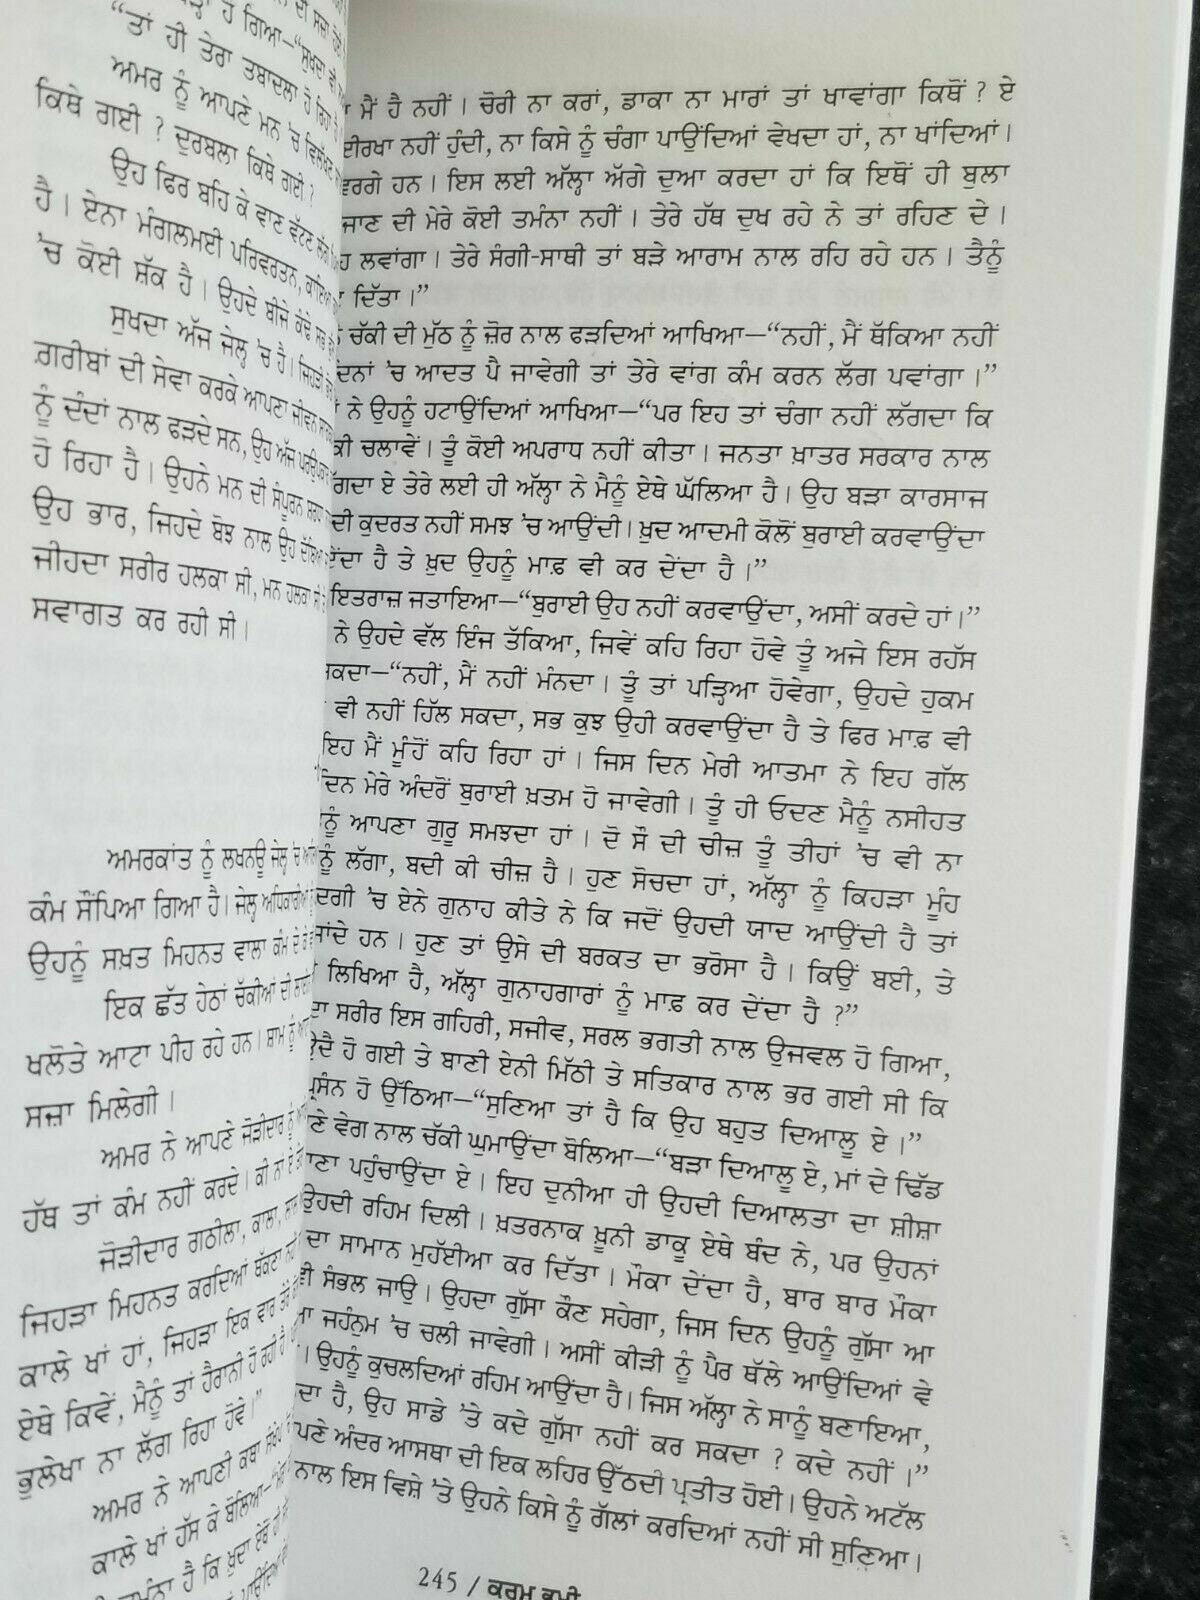 “ਤਾਂ ਹੀ ਤੇਰਾ ਤਬਾਦਲਾ ਹੋ ਰਿਹਾ ਹੈ
ਅਮਰ ਨੂੰ ਆਪਣੇ ਮਨ ’ਚ
ਕਿਥੇ ਗਈ ? ਦੁਰਬਲਾ ਕਿਥੇ ਗਈ ?
ਉਹ ਫਿਰ ਬਹਿ ਕੇ ਵਾਣ ਵੱਟਣ ਲੱਗ
ਹੈ। ਏਨਾ ਮੰਗਲਮਈ ਪਰਿਵਰਤਨ,
’ਚ ਕੋਈ ਸ਼ੱਕ ਹੈ। ਉਹਦੇ ਬੀਜੇ ਕੰਢੇ ਸਭ
ਸੁਖਦਾ ਅੱਜ ਜੇਲ੍ਹ ’ਚ ਹੈ। ਜਿਹੜੀ
ਗ਼ਰੀਬਾਂ ਦੀ ਸੇਵਾ ਕਰਕੇ ਆਪਣਾ ਜੀਵਨ
ਨੂੰ ਦੰਦਾਂ ਨਾਲ ਫੜਦੇ ਸਨ, ਉਹ ਅੱਜ ਪਰਉਪਕਾਰ
ਹੋ ਰਿਹਾ ਹੈ। ਉਹਨੇ ਮਨ ਦੀ ਸੰਪੂਰਨ ਸ਼ਰਧਾ
ਉਹ ਭਾਰ, ਜਿਹਦੇ ਬੋਝ ਨਾਲ ਉਹ ਦੱਬਿਆ
ਜੀਹਦਾ ਸਰੀਰ ਹਲਕਾ ਸੀ, ਮਨ ਹਲਕਾ ਸੀ ਤੇ
ਸਵਾਗਤ ਕਰ ਰਹੀ ਸੀ।
ਅਮਰਕਾਂਤ ਨੂੰ ਲਖਨਊ ਜੇਲ੍ਹ ’ਚ
ਕੰਮ ਸੌਂਪਿਆ ਗਿਆ ਹੈ। ਜੇਲ੍ਹ ਅਧਿਕਾਰੀਆਂ ਨੂੰ
ਉਹਨੂੰ ਸਖ਼ਤ ਮਿਹਨਤ ਵਾਲਾ ਕੰਮ ਦੇ ਕੇ
ਇਕ ਛੱਤ ਹੇਠਾਂ ਚੱਕੀਆਂ ਦੀ
ਖਲੋਤੇ ਆਟਾ ਪੀਹ ਰਹੇ ਹਨ। ਸ਼ਾਮ ਨੂੰ
ਸਜ਼ਾ ਮਿਲੇਗੀ।
ਅਮਰ ਨੇ ਆਪਣੇ ਜੋੜੀਦਾਰ ਨੂੰ
ਹੱਥ ਤਾਂ ਕੰਮ ਨਹੀਂ ਕਰਦੇ। ਕੀ ਨਾਂ ਏ
ਜੋੜੀਦਾਰ ਗਠੀਲਾ, ਕਾਲਾ, ਲਾਲ
ਜਿਹੜਾ ਮਿਹਨਤ ਕਰਦਿਆਂ ਥੱਕਣਾ
ਕਾਲੇ ਖਾਂ ਹਾਂ, ਜਿਹੜਾ ਇਕ ਵਾਰ ਤੇਰੇ
ਏਥੇ ਕਿਵੇਂ, ਮੈਨੂੰ ਤਾਂ ਹੈਰਾਨੀ ਹੋ ਰਹੀ ਹੈ
ਭੁਲੇਖਾ ਨਾ ਲੱਗ ਰਿਹਾ ਹੋਵੇ।”
ਅਮਰ ਨੇ ਆਪਣੀ ਕਥਾ ਸੰਖੇਪ
ਕਾਲੇ ਖਾਂ ਹੱਸ ਕੇ ਬੋਲਿਆ—
ਮੈਂ ਹੈ ਨਹੀਂ। ਚੋਰੀ ਨਾ ਕਰਾਂ, ਡਾਕਾ ਨਾ ਮਾਰਾਂ ਤਾਂ ਖਾਵਾਂਗਾ ਕਿਥੋਂ ? ਏ
ਈਰਖਾ ਨਹੀਂ ਹੁੰਦੀ, ਨਾ ਕਿਸੇ ਨੂੰ ਚੰਗਾ ਪਾਉਂਦਿਆਂ ਵੇਖਦਾ ਹਾਂ, ਨਾ ਖਾਂਦਿਆਂ।
ਵਰਗੇ ਹਨ। ਇਸ ਲਈ ਅੱਲ੍ਹਾ ਅੱਗੇ ਦੁਆ ਕਰਦਾ ਹਾਂ ਕਿ ਇਥੋਂ ਹੀ ਬੁਲਾ
ਜਾਣ ਦੀ ਮੇਰੇ ਕੋਈ ਤਮੰਨਾ ਨਹੀਂ। ਤੇਰੇ ਹੱਥ ਦੁਖ ਰਹੇ ਨੇ ਤਾਂ ਰਹਿਣ ਦੇ।
ਹ ਲਵਾਂਗਾ। ਤੇਰੇ ਸੰਗੀ-ਸਾਥੀ ਤਾਂ ਬੜੇ ਆਰਾਮ ਨਾਲ ਰਹਿ ਰਹੇ ਹਨ। ਤੈਨੂੰ
ਦਿੱਤਾ।”
ਚੱਕੀ ਦੀ ਮੁੱਠ ਨੂੰ ਜ਼ੋਰ ਨਾਲ ਫੜਦਿਆਂ ਆਖਿਆ—“ਨਹੀਂ, ਮੈਂ ਥੱਕਿਆ ਨਹੀਂ
ਦਿਨਾਂ ’ਚ ਆਦਤ ਪੈ ਜਾਵੇਗੀ ਤਾਂ ਤੇਰੇ ਵਾਂਗ ਕੰਮ ਕਰਨ ਲੱਗ ਪਵਾਂਗਾ।”
ਨੇ ਉਹਨੂੰ ਹਟਾਉਂਦਿਆਂ ਆਖਿਆ—“ਪਰ ਇਹ ਤਾਂ ਚੰਗਾ ਨਹੀਂ ਲੱਗਦਾ ਕਿ
ਕੀ ਚਲਾਵੇਂ। ਤੂੰ ਕੋਈ ਅਪਰਾਧ ਨਹੀਂ ਕੀਤਾ। ਜਨਤਾ ਖ਼ਾਤਰ ਸਰਕਾਰ ਨਾਲ
ਗਦਾ ਏ ਤੇਰੇ ਲਈ ਹੀ ਅੱਲ੍ਹਾ ਨੇ ਮੈਨੂੰ ਏਥੇ ਘੱਲਿਆ ਹੈ। ਉਹ ਬੜਾ ਕਾਰਸਾਜ
ਦੀ ਕੁਦਰਤ ਨਹੀਂ ਸਮਝ ’ਚ ਆਉਂਦੀ। ਖ਼ੁਦ ਆਦਮੀ ਕੋਲੋਂ ਬੁਰਾਈ ਕਰਵਾਉਂਦਾ
ਦੇਂਦਾ ਹੈ ਤੇ ਖ਼ੁਦ ਉਹਨੂੰ ਮਾਫ਼ ਵੀ ਕਰ ਦੇਂਦਾ ਹੈ।”
ਇਤਰਾਜ਼ ਜਤਾਇਆ—“ਬੁਰਾਈ ਉਹ ਨਹੀਂ ਕਰਵਾਉਂਦਾ, ਅਸੀਂ ਕਰਦੇ ਹਾਂ।”
ਨੇ ਉਹਦੇ ਵੱਲ ਇੰਜ ਤੱਕਿਆ, ਜਿਵੇਂ ਕਹਿ ਰਿਹਾ ਹੋਵੇ ਤੂੰ ਅਜੇ ਇਸ ਰਹੱਸ
ਸਕਦਾ—“ਨਹੀਂ, ਮੈਂ ਨਹੀਂ ਮੰਨਦਾ। ਤੂੰ ਤਾਂ ਪੜ੍ਹਿਆ ਹੋਵੇਗਾ, ਉਹਦੇ ਹੁਕਮ
ਵੀ ਨਹੀਂ ਹਿੱਲ ਸਕਦਾ, ਸਭ ਕੁਝ ਉਹੀ ਕਰਵਾਉਂਦਾ ਹੈ ਤੇ ਫਿਰ ਮਾਫ਼ ਵੀ
ਇਹ ਮੈਂ ਮੂੰਹੋਂ ਕਹਿ ਰਿਹਾ ਹਾਂ। ਜਿਸ ਦਿਨ ਮੇਰੀ ਆਤਮਾ ਨੇ ਇਹ ਗੱਲ
ਦਿਨ ਮੇਰੇ ਅੰਦਰੋਂ ਬੁਰਾਈ ਖ਼ਤਮ ਹੋ ਜਾਵੇਗੀ। ਤੂੰ ਹੀ ਓਦਣ ਮੈਨੂੰ ਨਸੀਹਤ
ਨੂੰ ਆਪਣਾ ਗੁਰੂ ਸਮਝਦਾ ਹਾਂ। ਦੋ ਸੌ ਦੀ ਚੀਜ਼ ਤੂੰ ਤੀਹਾਂ ’ਚ ਵੀ ਨਾ
ਨੂੰ ਲੱਗਾ, ਬਦੀ ਕੀ ਚੀਜ਼ ਹੈ। ਹੁਣ ਸੋਚਦਾ ਹਾਂ, ਅੱਲ੍ਹਾ ਨੂੰ ਕਿਹੜਾ ਮੂੰਹ
ਦਗੀ ’ਚ ਏਨੇ ਗੁਨਾਹ ਕੀਤੇ ਨੇ ਕਿ ਜਦੋਂ ਉਹਦੀ ਯਾਦ ਆਉਂਦੀ ਹੈ ਤਾਂ
ਜਾਂਦੇ ਹਨ। ਹੁਣ ਤਾਂ ਉਸੇ ਦੀ ਬਰਕਤ ਦਾ ਭਰੋਸਾ ਹੈ। ਕਿਉਂ ਬਈ, ਤੇ
ਲਿਖਿਆ ਹੈ, ਅੱਲ੍ਹਾ ਗੁਨਾਹਗਾਰਾਂ ਨੂੰ ਮਾਫ਼ ਕਰ ਦੇਂਦਾ ਹੈ ?”
ਦਾ ਸਰੀਰ ਇਸ ਗਹਿਰੀ, ਸਜੀਵ, ਸਰਲ ਭਗਤੀ ਨਾਲ ਉਜਵਲ ਹੋ ਗਿਆ,
ਉਦੈ ਹੋ ਗਈ ਤੇ ਬਾਣੀ ਏਨੀ ਮਿੱਠੀ ਤੇ ਸਤਿਕਾਰ ਨਾਲ ਭਰ ਗਈ ਸੀ ਕਿ
ਪ੍ਰਸੰਨ ਹੋ ਉੱਠਿਆ—“ਸੁਣਿਆ ਤਾਂ ਹੈ ਕਿ ਉਹ ਬਹੁਤ ਦਿਆਲੂ ਏ।”
ਣੇ ਵੇਗ ਨਾਲ ਚੱਕੀ ਘੁਮਾਉਂਦਾ ਬੋਲਿਆ—“ਬੜਾ ਦਿਆਲੂ ਏ, ਮਾਂ ਦੇ ਢਿੱਡ
ਾਣਾ ਪਹੁੰਚਾਉਂਦਾ ਏ। ਇਹ ਦੁਨੀਆ ਹੀ ਉਹਦੀ ਦਿਆਲਤਾ ਦਾ ਸ਼ੀਸ਼ਾ
ਉਹਦੀ ਰਹਿਮ ਦਿਲੀ। ਖ਼ਤਰਨਾਕ ਖ਼ੂਨੀ ਡਾਕੂ ਏਥੇ ਬੰਦ ਨੇ, ਪਰ ਉਹਨਾਂ
ਦਾ ਸਾਮਾਨ ਮੁਹੱਈਆ ਕਰ ਦਿੱਤਾ। ਮੌਕਾ ਦੇਂਦਾ ਹੈ, ਬਾਰ ਬਾਰ ਮੌਕਾ
ਸੰਭਲ ਜਾਓ। ਉਹਦਾ ਗੁੱਸਾ ਕੌਣ ਸਹੇਗਾ, ਜਿਸ ਦਿਨ ਉਹਨੂੰ ਗੁੱਸਾ ਆ
ਜਹੰਨੁਮ ’ਚ ਚਲੀ ਜਾਵੇਗੀ। ਅਸੀਂ ਕੀੜੀ ਨੂੰ ਪੈਰ ਥੱਲੇ ਆਉਂਦਿਆਂ ਵੇ
। ਉਹਨੂੰ ਕੁਚਲਦਿਆਂ ਰਹਿਮ ਆਉਂਦਾ ਹੈ। ਜਿਸ ਅੱਲ੍ਹਾ ਨੇ ਸਾਨੂੰ ਬਣਾਇਆ,
ਦਾ ਹੈ, ਉਹ ਸਾਡੇ ’ਤੇ ਕਦੇ ਗੁੱਸਾ ਨਹੀਂ ਕਰ ਸਕਦਾ ? ਕਦੇ ਨਹੀਂ।”
ਪਣੇ ਅੰਦਰ ਆਸਥਾ ਦੀ ਇਕ ਲਹਿਰ ਉੱਠਦੀ ਪ੍ਰਤੀਤ ਹੋਈ। ਉਹਨੇ ਅਟੱਲ
ਨਾਲ ਇਸ ਵਿਸ਼ੇ ’ਤੇ ਉਹਨੇ ਕਿਸੇ ਨੂੰ ਗੱਲਾਂ ਕਰਦਿਆਂ ਨਹੀਂ ਸੀ ਸੁਣਿਆ।
245 / ਕਰਮ ਭੂਮੀ